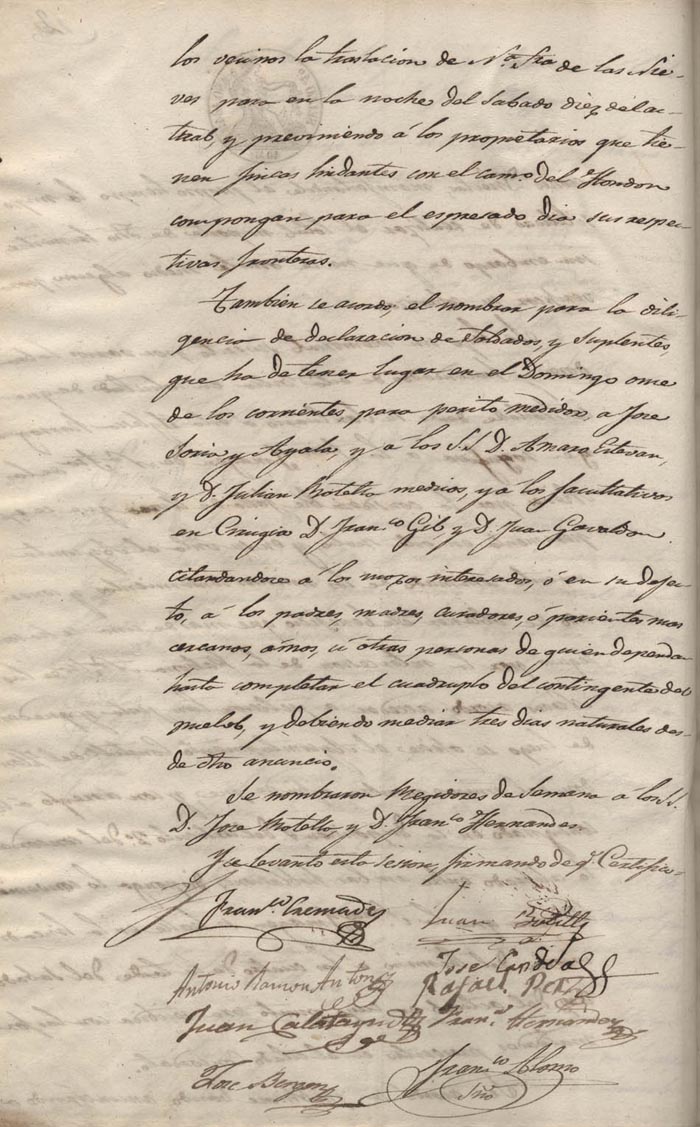 los vecinos la traslacion de N.ª Sra de las Nie-
ves para en la noche del Sabado diez del ac-
tual, y previniendo á los propietarios que tie-
nen fincas lindantes con el cam.º del Hondon
compongan para el espresado dia sus respec-
tivas fronteras.
Tambien se acordó, el nombrar para la dili-
gencia de declaracion de Soldados, y Suplentes,
que ha de tener lugar en el Domingo once
de los corrientes, para perito medidor, a Jose
Soria y Ayala y a los S.S. D. Amaro Estevan,
y D. Julian Botella medicos, y a los facultativos
en Cirugia D. Fran.co Gil y D. Juan Gavaldon
citandandose á los mozos interesados, ó en su defec-
to, á los padres, madres, curadores, ó parientes mas
cercanos, amos, ú otras personas de quien dependan
hasta completar el cuadruplo del contingente del
pueblo, y debiendo mediar tres dias naturales des-
de otro anuncio.
Se nombraron Regidores de Semana a los S.S.
D. Jose Botella, y D. Fran.co Hernandes.
Y se levantó esta sesion, firmando de q.e Certifico.
Fran.co Cremades Juan Botella
Antonio Ramon Antón José
Rafael
Juan Calatayud Fran.co Hernandez
Jose Fran.co Alonso
Srio